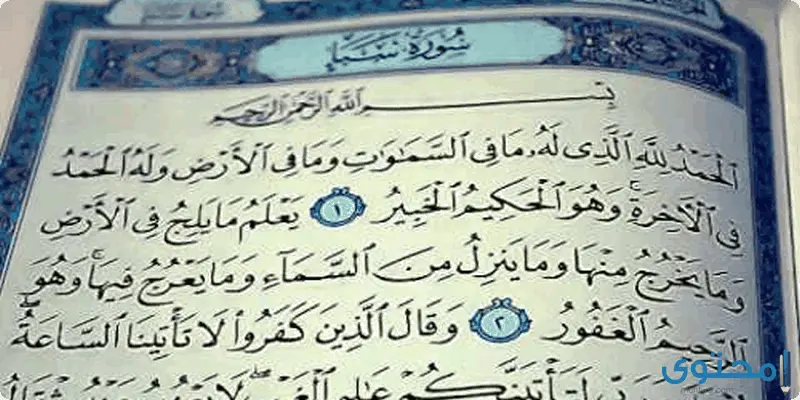 سُورَةُ سَبَإٍ
بِسْمِ اللَّهِ الرَّحْمَٰنِ الرَّحِيمِ
الْحَمْدُ لِلَّهِ الَّذِى لَهُۥ مَا فِى السَّمَٰوَٰتِ وَمَا فِى الْأَرْضِ وَلَهُ الْحَمْدُ
فِى الْءَاخِرَةِ ۚ وَهُوَ الْحَكِيمُ الْخَبِيرُ ١ يَعْلَمُ مَا يَلِجُ فِى الْأَرْضِ
وَمَا يَخْرُجُ مِنْهَا وَمَا يَنزِلُ مِنَ السَّمَآءِ وَمَا يَعْرُجُ فِيهَا ۚ وَهُوَ
الرَّحِيمُ الْغَفُورُ ٢ وَقَالَ الَّذِينَ كَفَرُوا۟ لَا تَأْتِينَا السَّاعَةُ ۖ
لَتَأْتِيَنَّكُمْ عَٰلِمِ الْغَيْبِ ۖ لَا
محتوى